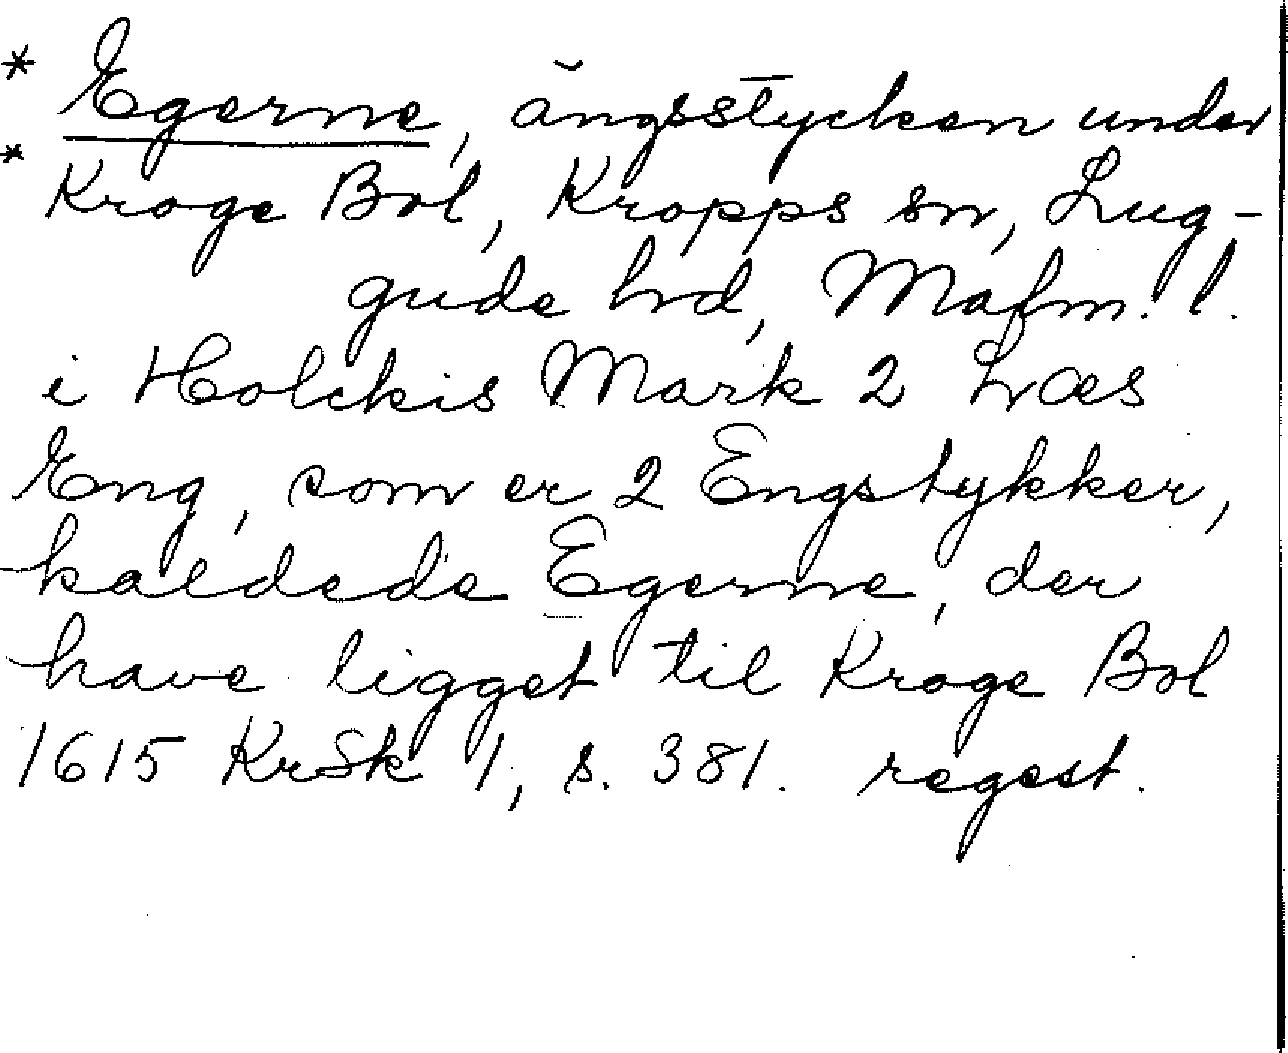 * Egerne, ängsstycken under
* Kroge Bol, Kropps sn, Lug-
gude hd, Mafm. l.
i Holckis Mark 2 Læs
Eng, som er 2 Engstykker,
kaldede Egerne, der
have ligget til Kroge Bol
1615 KrSk 1, s. 381. regest.